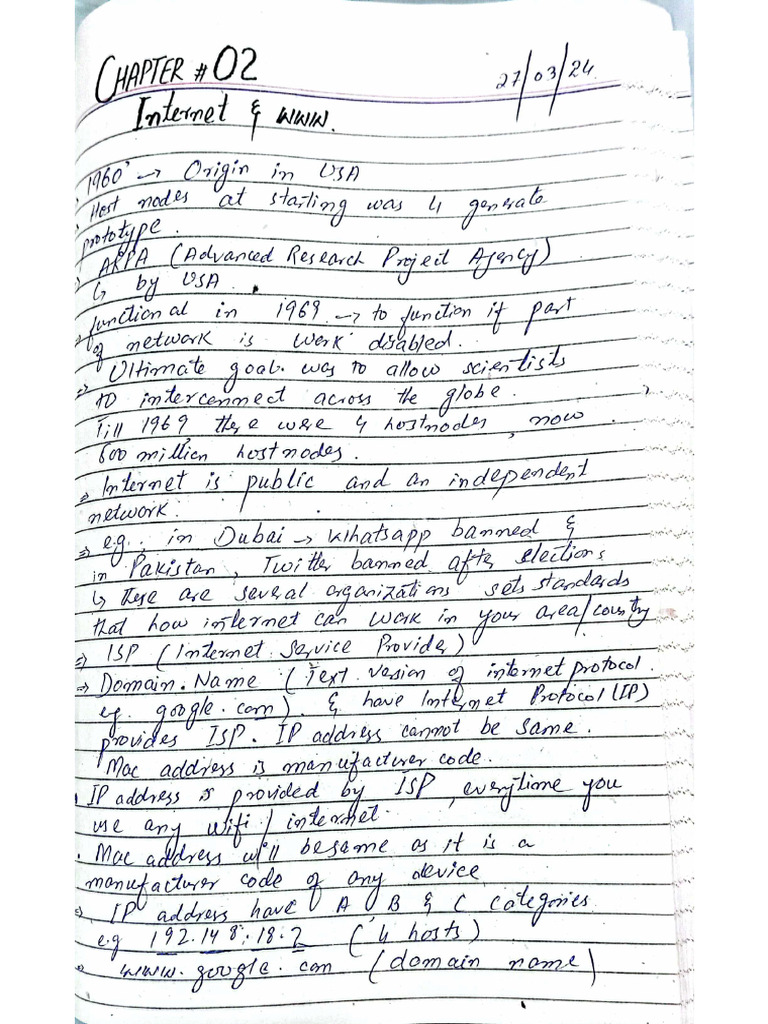 CHAPTER # 02
27/03/24
Internet & WWW.
1960' → Origin in USA
Host nodes at starting was 4 generate
prototype.
ARPA (Advanced Research Project Agency)
↳ by USA.
functional in 1969 → to function if part
of network is work disabled.
⇒ Ultimate goal was to allow scientists
to interconnect across the globe.
Till 1969 there were 4 hostnodes, now
600 million hostnodes.
⇒ Internet is public and an independent
network.
⇒ e.g., in Dubai → Whatsapp banned &
in Pakistan, Twitter banned after elections
↳ these are several organizations sets standards
that how internet can work in your area/country
⇒ ISP (Internet Service Provider)
⇒ Domain.Name (Text version of internet protocol.
eg. google.com) & have Internet Protocol (IP)
provides ISP. IP address cannot be same.
Mac address is manufacturer code.
IP address is provided by ISP, everytime you
use any wifi / internet.
• Mac address will be same as it is a
manufacturer code of any device
⇒ IP address have A, B & C categories.
e.g 192.148:18.2 (4 hosts)
www.google.com (domain name)